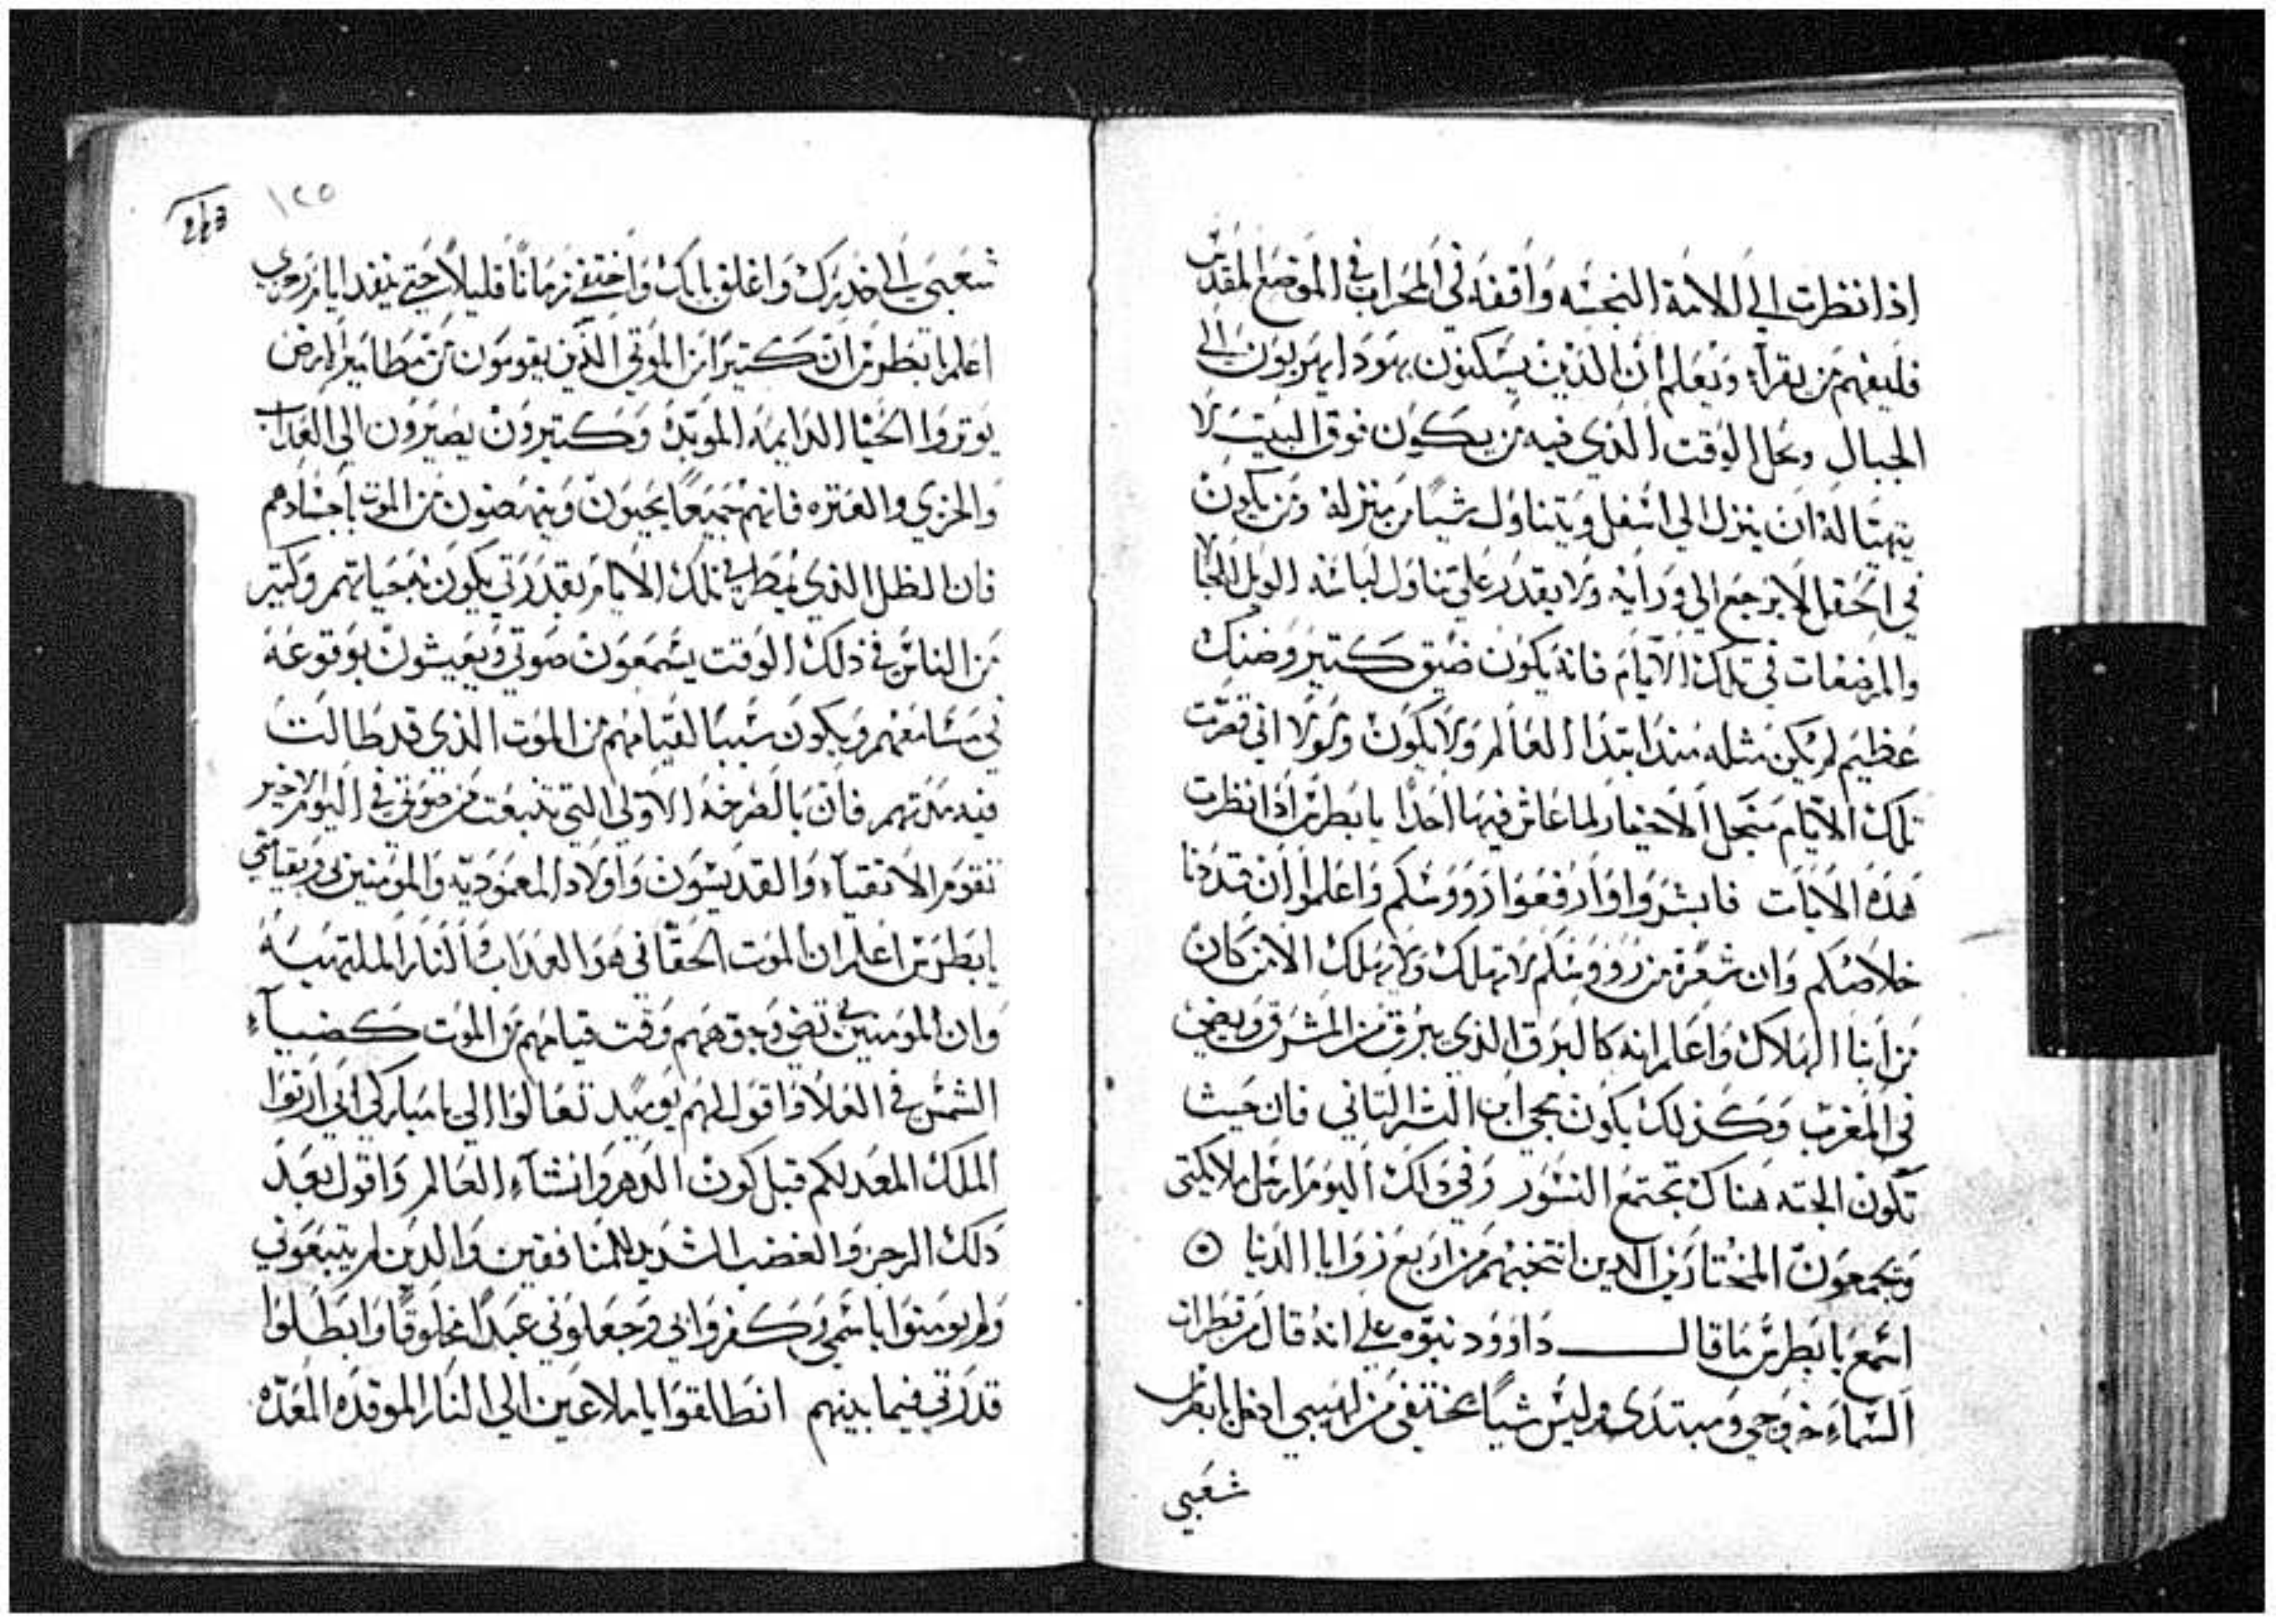 اذا نظرت الي الامة النجسه واقفه في المحراب في الموضع المقدس
فليفهم من يقراء ويعلم ان الذين يسكنون يهودا يهربون الى
الجبال وبحل الوقت الذي فيه من يكون فوق البيت لا
يتهيا له ان ينزل الي اسفل ويتناول شيا من منزله ومن يكون
في الحقل لا يرجع الي ورايه ولا يقدر علي تناول لباسه الويل للحبالا
والمرضعات في تلك الايام فانه يكون ضيق كتير وضنك
عظيم لم يكن مثله منذ ابتدا العالم ولا يكون ولولا اني قصرت
تلك الايام من اجل الاخيار لما عاش فيها احدا يا بطرس اذا نظرت
هذه الايات فابشروا وارفعوا رووسكم واعلموا ان قد دنا
خلاصكم وان شعرة من رووسكم لا تهلك ولا يهلك الا من كان
من ابنا الهلاك واعلم انه كالبرق الذي يبرق من المشرق ويضي
في المغرب وكذلك يكون مجي ابن البشر التاني فان حيث
تكون الجته هناك تجتمع النسور وفي ذلك اليوم ارسل ملايكتي
ويجمعون المختارين الدين انتخبتهم من اربع زوايا الدنيا
اسمع يا بطرس ما قال داوود نبوه علي انه قال من قطرات
السماء خروجي ومبتدى وليس شيا يختفي من لهيبي ادخل يا بطرس
شعبي
١٢٥
شعبي الي خدرك واغلق بابك واختفي زمانا قليلا حتي ينفد ايام رجزي
اعلم يا بطرس ان كتيرا من الموتي الذين يقومون من مطامير الارض
يوتروا الحيا الدايمه الموبده وكتيرون يصيرون الي العداب
والخزي والعتره فانهم جميعا يحيون وينهضون من الموت باجسادهم
فان الظل الذي يمطر في تلك الايام بقدرتي يكون به حياتهم وكتير
من الناس في ذلك الوقت يسمعون صوتي ويعيشون بوقوعه
في مسامعهم ويكون سببا لقيامهم من الموت الذي قد طالت
فيه مدتهم فان بالصرخه الاولي التي تنبعت من صوتي في اليوم الاخير
تقوم الاتقياء والقديسون واولاد المعموديه والمومنين بي وبقيامتي
يا بطرس اعلم ان الموت الحقاني هو العداب والنار الملتهبه
وان المومنين بي تضي وجوههم وقت قيامهم من الموت كضياء
الشمس في العلا واقول لهم يوميد تعالوا الي يا مباركي ابي ارتوا
الملك المعد لكم قبل كون الدهر وانشاء العالم واقول بعد
دلك الرجز والغضب الشديد للمنافقين والدين لم يتبعوني
ولم يومنوا باسمي وكفروا بي وجعلوني عبدا مخلوقا وابطلوا
قدرتي فيما بينهم انطلقوا يا ملاعين الي النار الموقده المعده